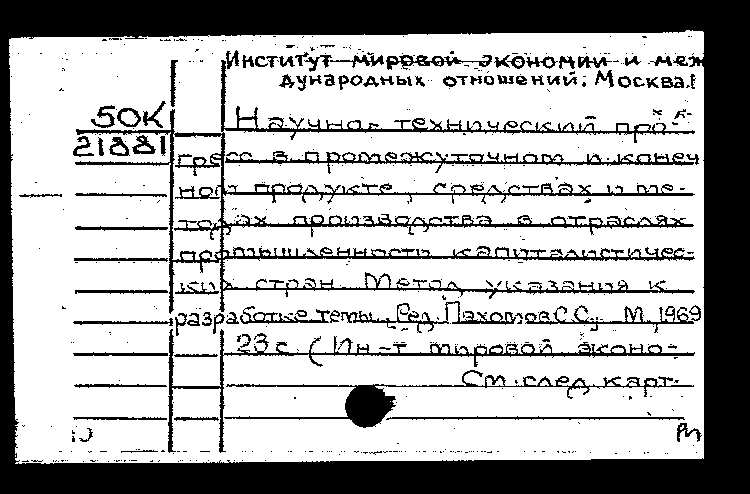 Институт мировой экономии и меж
дународных отношений. Москва.
50К
21881
Научно-технический про-
гресс в промежуточном и конеч
ном продукте, средствах и ме-
тодах производства в отраслях
промышленности капиталистичес-
ких стран. Метод указания к
разработке темы. Ред. Пахомов С.С., М., 1969
23 с. (Ин-т мировой эконо-
См. след. карт.